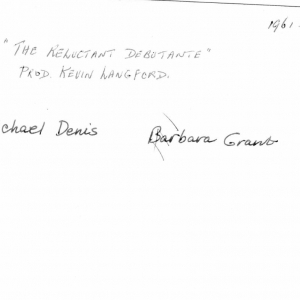 1961.
"THE RELUCTANT DEBUTANTE"
PROD. KEVIN LANGFORD.
chael Denis Barbara Grant